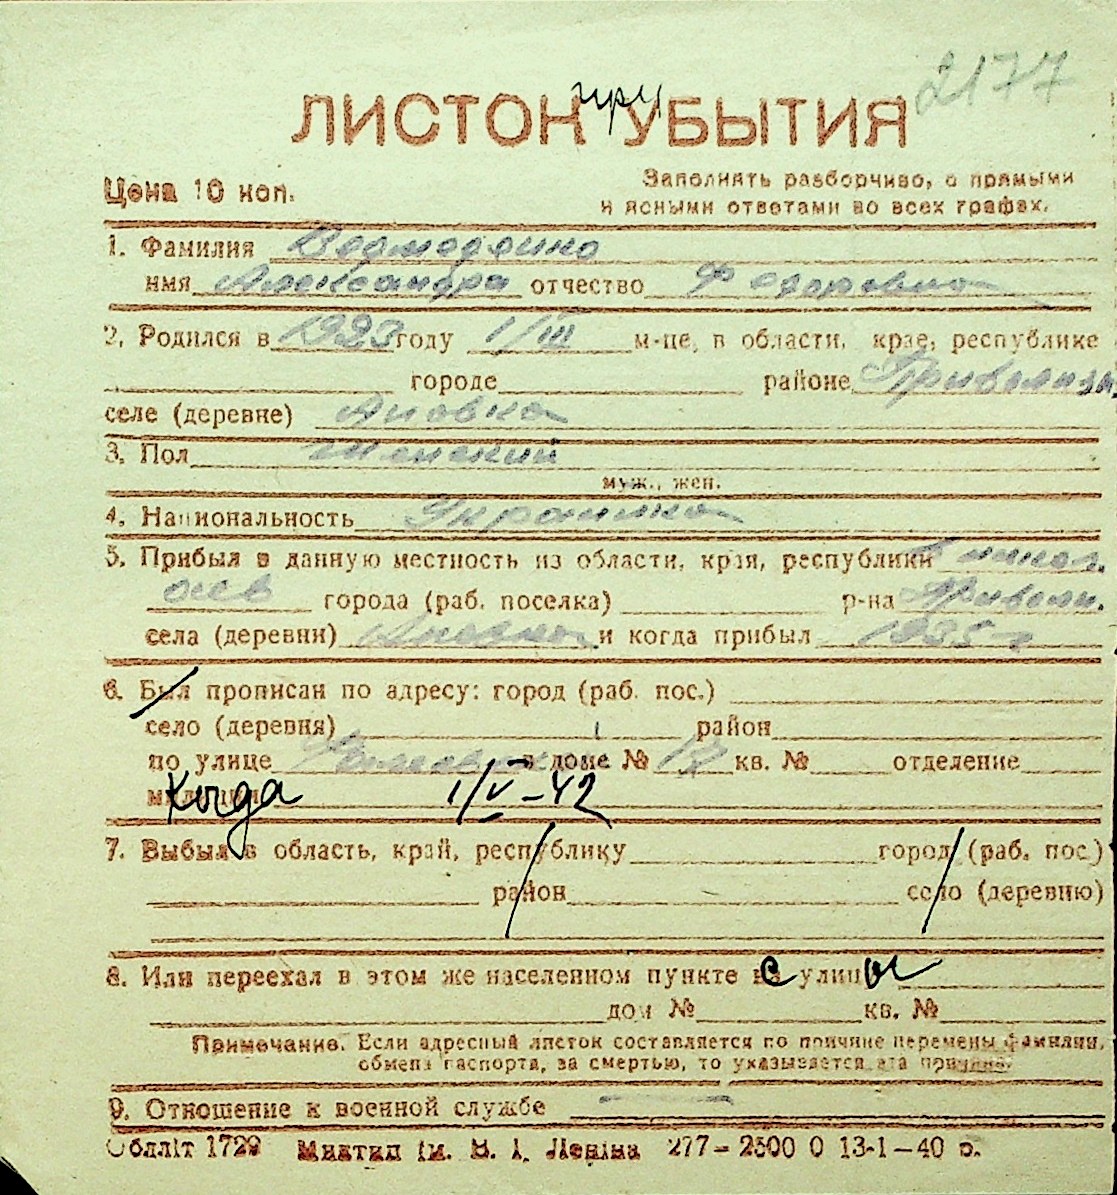 2177
ЛИСТОК при УБЫТИЯ
Цена 10 коп.
Заполнять разборчиво, с прямыми
и ясными ответами во всех графах.
1. Фамилия
имя Александра отчество Федоровна
2. Родился в 1923 году 1/III м-це, в области, крае, республике
городе районе Привольн.
селе (деревне) Ановка
3. Пол Женский
муж., жен.
4. Национальность Украинка
5. Прибыл в данную местность из области, края, республики Никол
аев города (раб. поселка) р-на Привольн.
села (деревни) Ановка и когда прибыл 1935 г
6. Был прописан по адресу: город (раб. пос.)
село (деревня) район
по улице в доме № 17 кв. № отделение
милиции Когда 1/V-42
7. Выбыл в область, край, республику город (раб. пос.)
район село (деревню)
8. Или переехал в этом же населенном пункте с улицы
дом № кв. №
Примечание. Если адресный листок составляется по причине перемены фамилии,
обмена паспорта, за смертью, то указывается эта причина.
9. Отношение к военной службе —
Обллiт 1729 Миктип iм. В. I. Ленiна 277–2500 0 13-1–40 р.